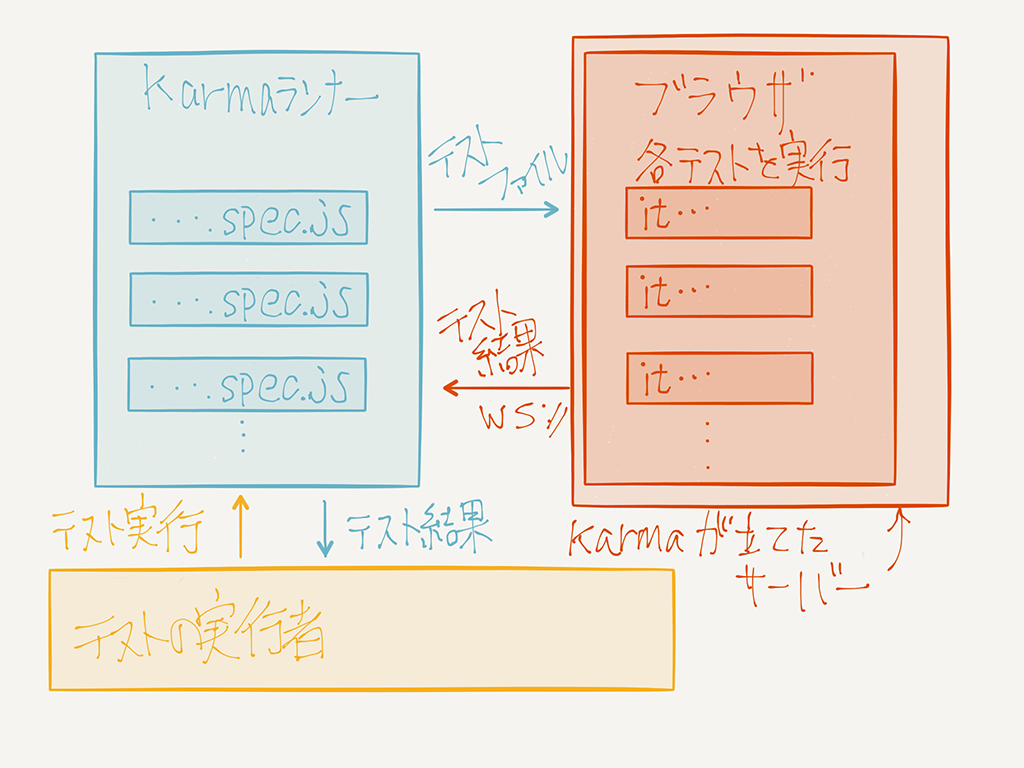 Karmaランナー
・・・.spec.js
・・・.spec.js
・・・.spec.js
テスト
ファイル
テスト
結果
WS://
ブラウザ
各テストを実行
it・・・
it・・・
it・・・
Karmaが立てた
サーバー
テスト実行
テスト結果
テストの実行者